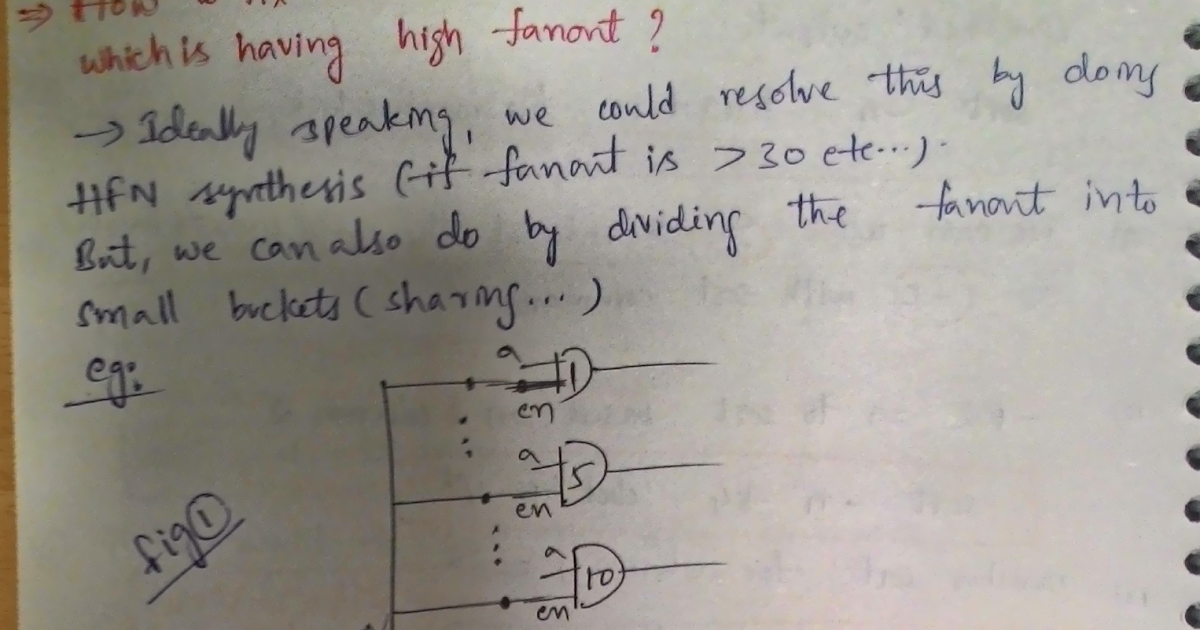 ⇒ How
which is having high fanout ?
→ Ideally speaking, we could resolve this by doing
HFN synthesis (if fanout is > 30 etc...).
But, we can also do by dividing the fanout into
small buckets (sharing...)
eg:
a
1
en
a
5
en
fig ①
a
10
en